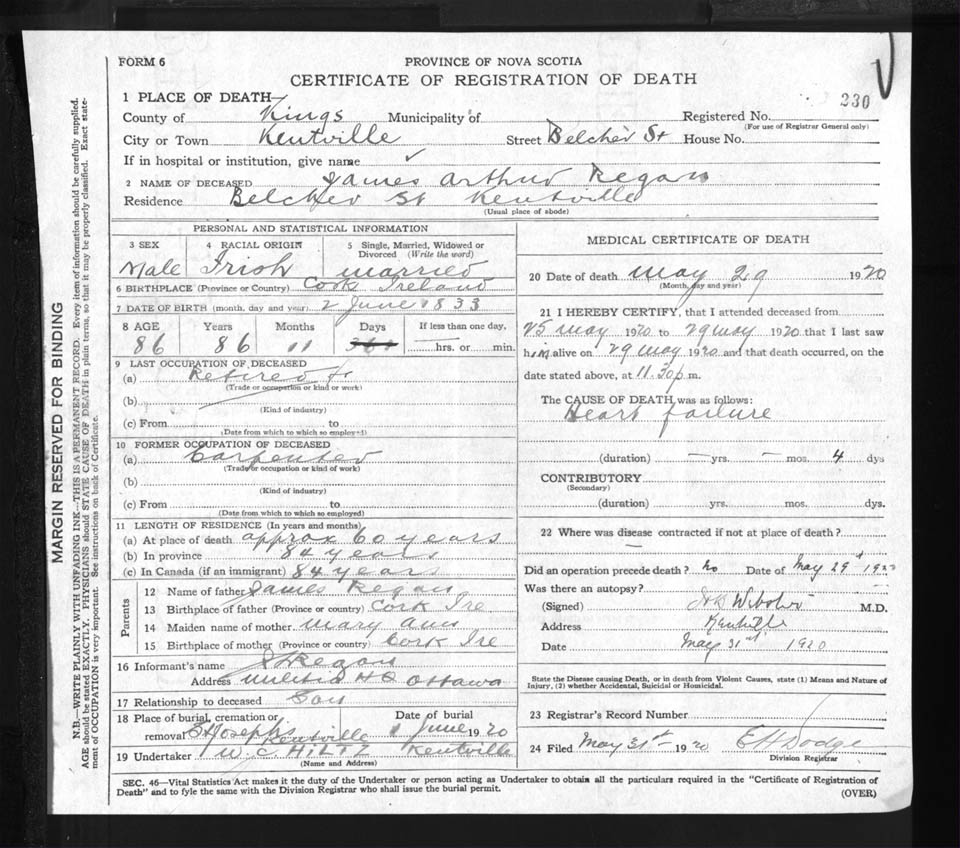 FORM 6
PROVINCE OF NOVA SCOTIA
CERTIFICATE OF REGISTRATION OF DEATH
230
1 PLACE OF DEATH—
County of Kings Municipality of Registered No.
(For use of Registrar General only)
City or Town Kentville Street Belcher St House No.
If in hospital or institution, give name ✓
2 NAME OF DECEASED James Arthur Regan
Residence Belcher St Kentville
(Usual place of abode)
PERSONAL AND STATISTICAL INFORMATION
3 SEX 4 RACIAL ORIGIN 5 Single, Married, Widowed or Divorced (Write the word)
Male Irish married
6 BIRTHPLACE (Province or Country) Cork Ireland
7 DATE OF BIRTH (month, day and year) 2 June 1833
8 AGE Years Months Days If less than one day,
86 86 11 hrs. or min.
9 LAST OCCUPATION OF DECEASED
(a) Retired
(Trade or occupation or kind of work)
(b)
(Kind of industry)
(c) From to
(Date from which to which so employed)
10 FORMER OCCUPATION OF DECEASED
(a) Carpenter
(Trade or occupation or kind of work)
(b)
(Kind of industry)
(c) From to
(Date from which to which so employed)
11 LENGTH OF RESIDENCE (In years and months)
(a) At place of death approx 60 years
(b) In province 84 years
(c) In Canada (if an immigrant) 84 years
Parents
12 Name of father James Regan
13 Birthplace of father (Province or country) Cork Ire
14 Maiden name of mother Mary Ann
15 Birthplace of mother (Province or country) Cork Ire
16 Informant's name Regan
Address Militia HQ Ottawa
17 Relationship to deceased Son
18 Place of burial, cremation or Date of burial
removal St Josephs Kentville 1 June 1920
19 Undertaker W. C. Hiltz Kentville
(Name and Address)
MEDICAL CERTIFICATE OF DEATH
20 Date of death May 29 1920
(Month, day and year)
21 I HEREBY CERTIFY, that I attended deceased from
25 May 1920 to 29 May 1920 that I last saw
him alive on 29 May 1920 and that death occurred, on the
date stated above, at 11.30 p m.
The CAUSE OF DEATH was as follows:
Heart failure
(duration) — yrs. — mos. 4 dys
CONTRIBUTORY
(Secondary)
(duration) yrs. mos. dys.
22 Where was disease contracted if not at place of death?
—
Did an operation precede death? no Date of May 29t 1920
Was there an autopsy?
(Signed) Webster M.D.
Address Kentville
Date May 31st 1920
State the Disease causing Death, or in death from Violent Causes, state (1) Means and Nature of
Injury, (2) whether Accidental, Suicidal or Homicidal.
23 Registrar's Record Number
24 Filed May 31st 1920 E H Dodge
Division Registrar
SEC. 46—Vital Statistics Act makes it the duty of the Undertaker or person acting as Undertaker to obtain all the particulars required in the "Certificate of Registration of
Death" and to fyle the same with the Division Registrar who shall issue the burial permit.
(OVER)
MARGIN RESERVED FOR BINDING
N.B.—WRITE PLAINLY WITH UNFADING INK—THIS IS A PERMANENT RECORD. Every item of information should be carefully supplied.
AGE should be stated EXACTLY. PHYSICIANS should STATE CAUSE OF DEATH in plain terms, so that it may be properly classified. Exact state-
ment of OCCUPATION is very important. See instructions on back of Certificate.